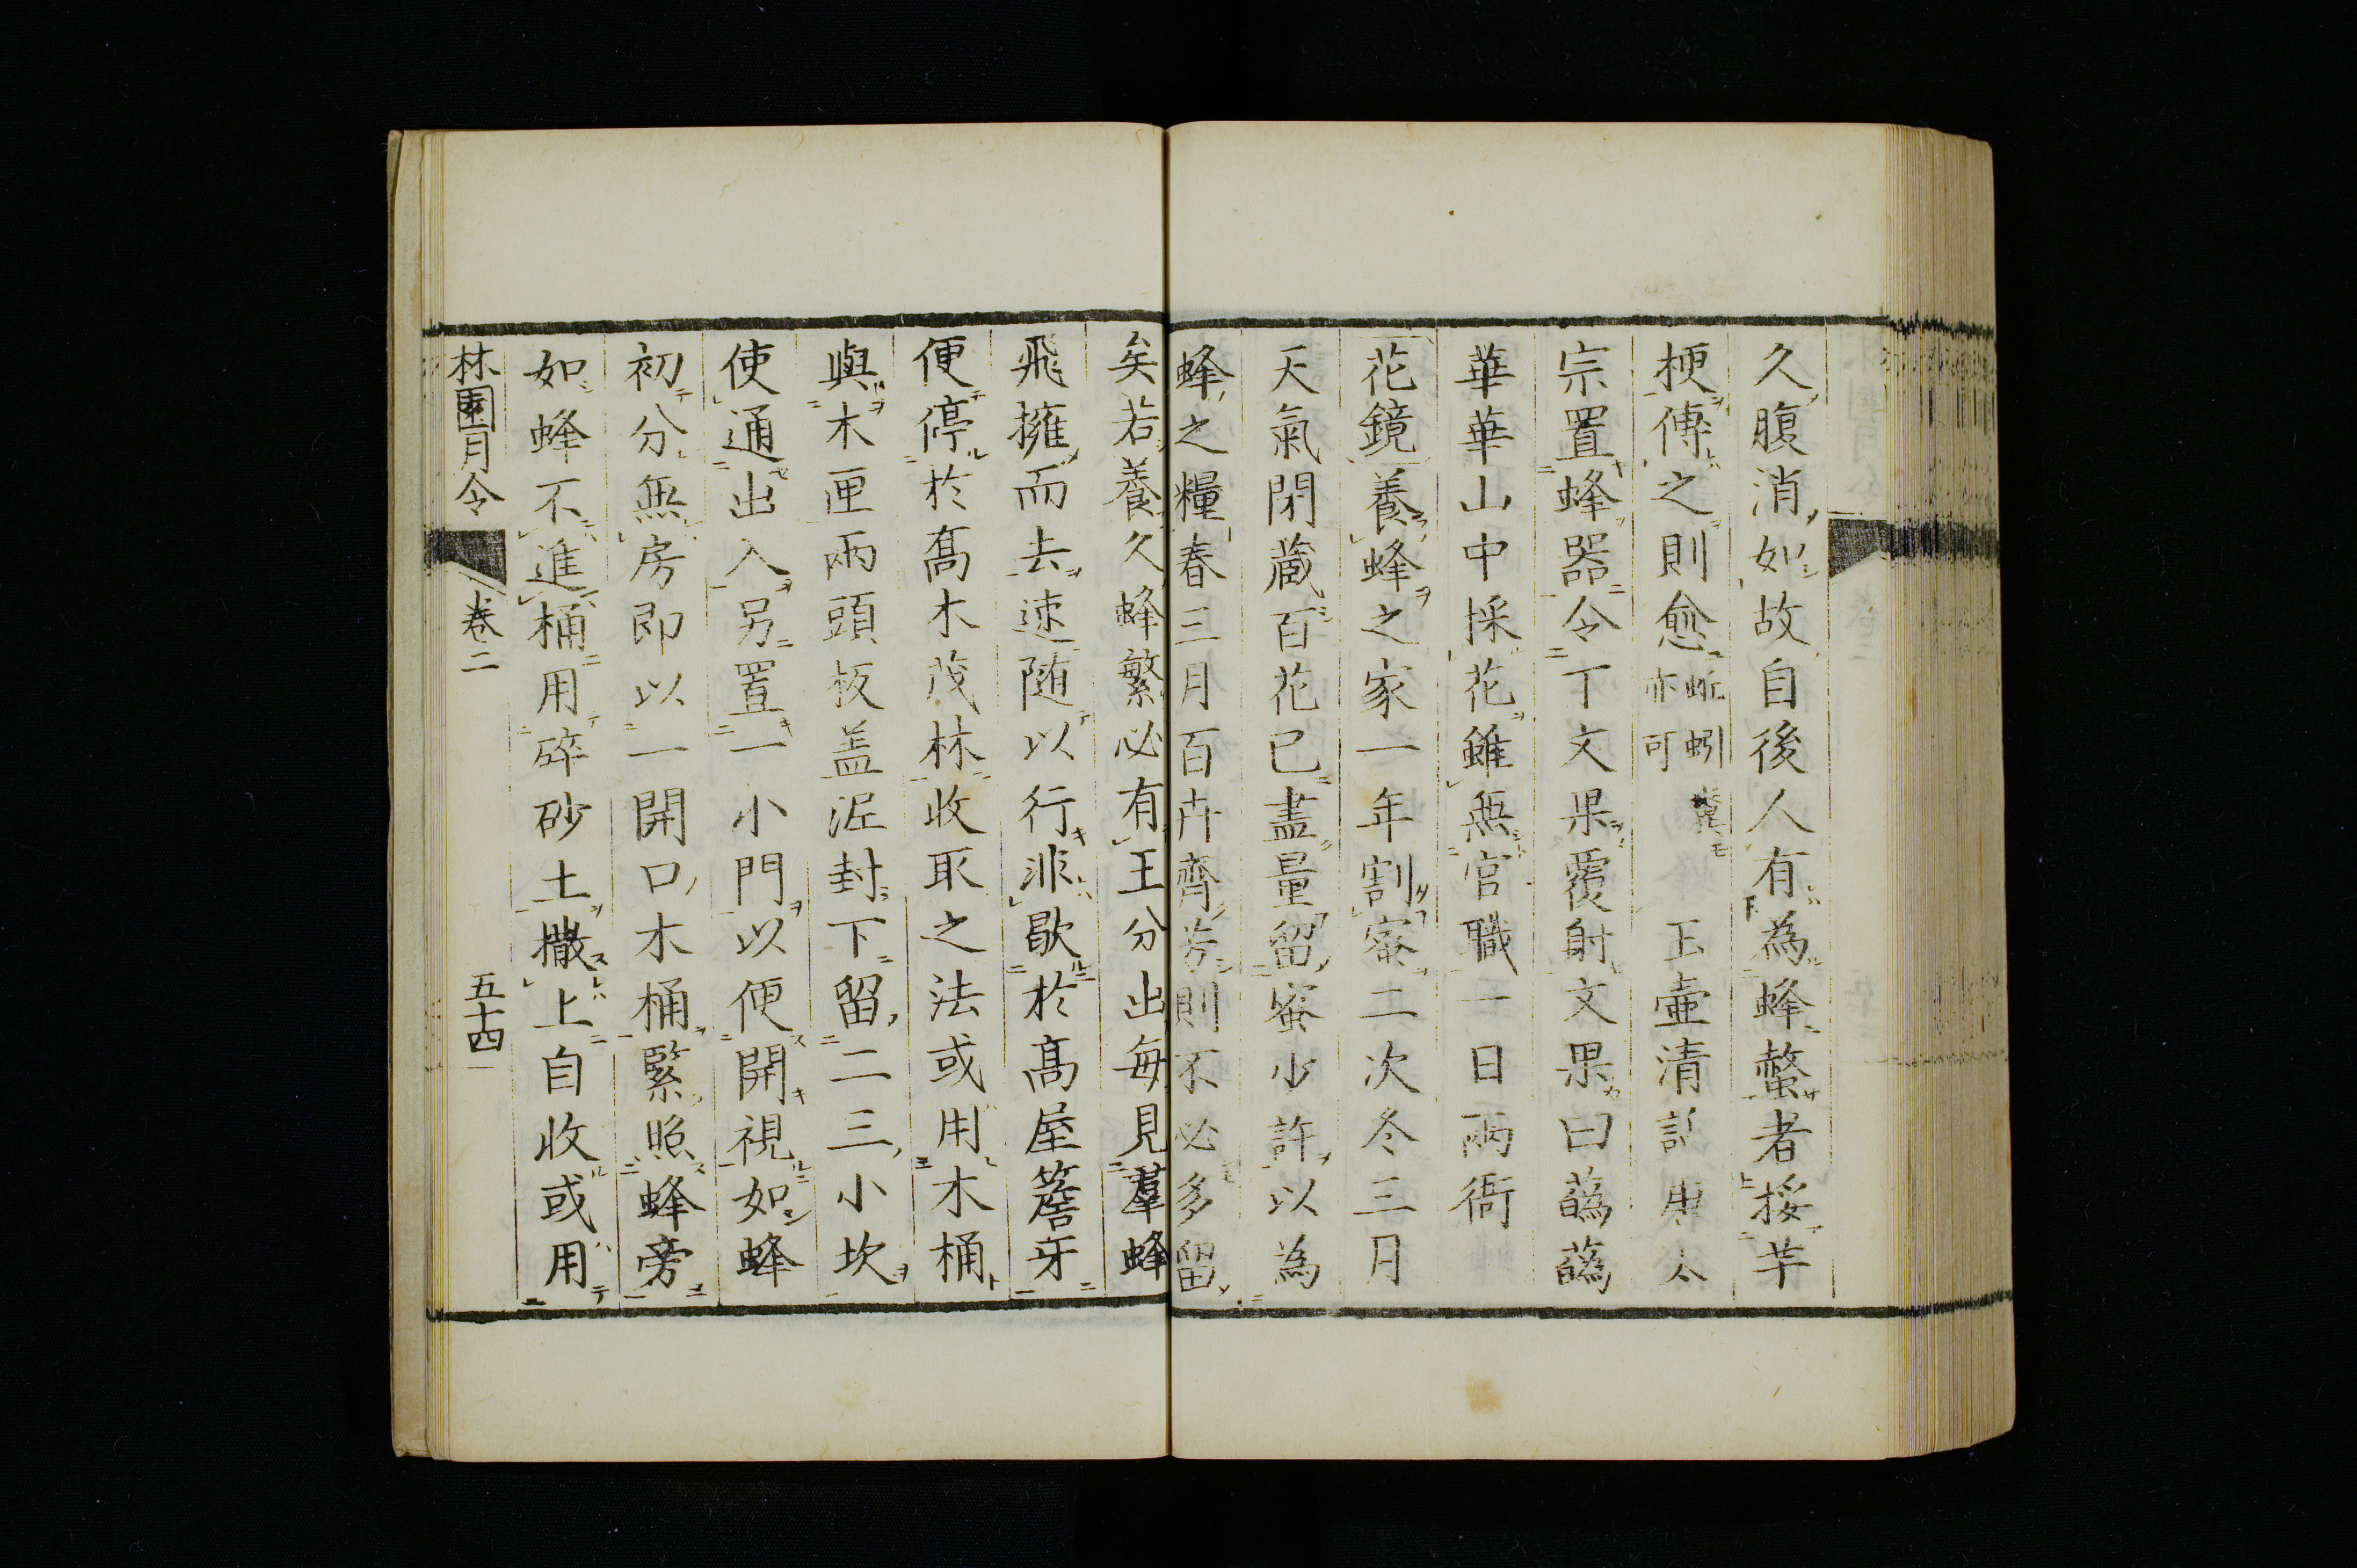 久腹消如故自後人有為蜂螫者挼芋
梗傅之則愈蚯蚓糞亦可 玉壷清話唐太
宗置蜂器令丁文果覆射文果曰蘤蘤
華華山中採花雖無官職一日兩衙
花鏡養蜂之家一年割蜜二次冬三月
天氣閉蔵百花已盡量留蜜少許以為
蜂之糧春三月百卉齊芳則不必多留
矣若養久蜂繁必有王分出每見羣蜂
飛擁而去速随以行非歇於髙屋簷牙
便停於髙木茂林收取之法或用木桶
與木匣兩頭板盖泥封下留二三小坎
使通出入另置一小門以便開視如蜂
初分無房即以一開口木桶緊照蜂旁
如蜂不進桶用碎砂土撒上自收或用
林園月令 卷二 五十四